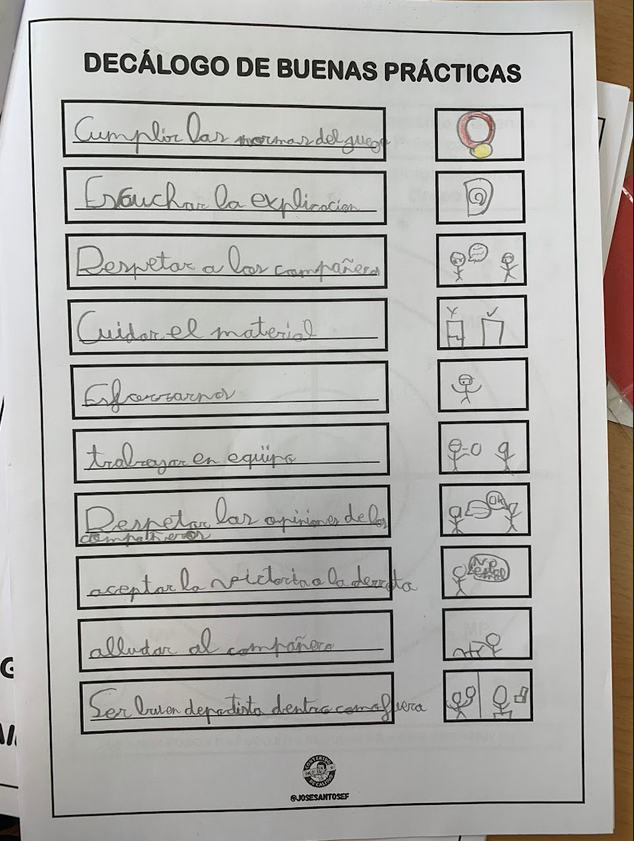 DECÁLOGO DE BUENAS PRÁCTICAS
Cumplir las normas del juego
Escuchar la explicacion
Respetar a los compañeros
Cuidar el material
Esforzarnos
trabajar en equipo
Respetar las opiniones de los
compañeros
aceptar la victoria o la derrota
alludar al compañero
Ser buen deportista dentro como fuera
OK
@JOSESANTOSEF